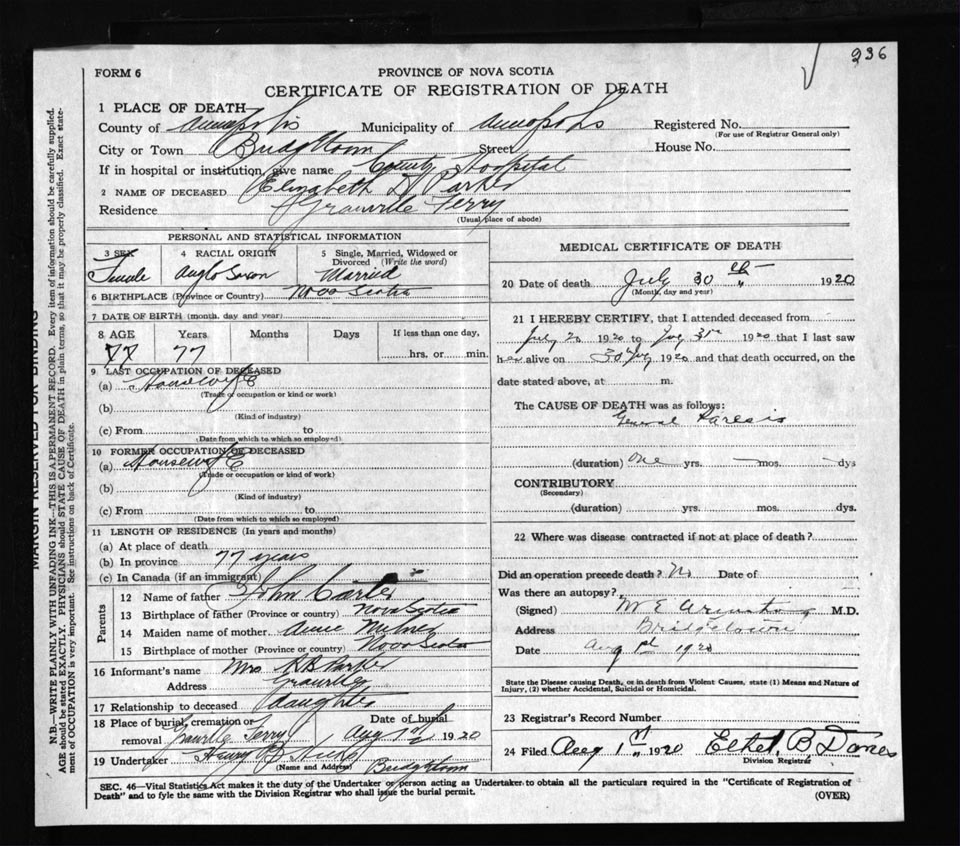 336
FORM 6
PROVINCE OF NOVA SCOTIA
CERTIFICATE OF REGISTRATION OF DEATH
1 PLACE OF DEATH—
County of Annapolis Municipality of Annapolis Registered No.
(For use of Registrar General only)
City or Town Bridgetown Street House No.
If in hospital or institution, give name County Hospital
2 NAME OF DECEASED Elizabeth D Parker
Residence Granville Ferry
(Usual place of abode)
PERSONAL AND STATISTICAL INFORMATION
3 SEX 4 RACIAL ORIGIN 5 Single, Married, Widowed or
Divorced (Write the word)
Female Anglo Saxon Married
6 BIRTHPLACE (Province or Country) Nova Scotia
7 DATE OF BIRTH (month, day and year)
8 AGE Years Months Days If less than one day,
77 77 hrs. or min.
9 LAST OCCUPATION OF DECEASED
(a) Housewife
(Trade or occupation or kind or work)
(b)
(Kind of industry)
(c) From to
(Date from which to which so employed)
10 FORMER OCCUPATION OF DECEASED
(a) Housewife
(Trade or occupation or kind of work)
(b)
(Kind of industry)
(c) From to
(Date from which to which so employed)
11 LENGTH OF RESIDENCE (In years and months)
(a) At place of death
(b) In province 77 years
(c) In Canada (if an immigrant)
Parents
12 Name of father John Carter
13 Birthplace of father (Province or country) Nova Scotia
14 Maiden name of mother Annie Milner
15 Birthplace of mother (Province or country) Nova Scotia
16 Informant's name Mrs R B Parker
Address Granville
17 Relationship to deceased daughter
18 Place of burial, cremation or Date of burial
removal Granville Ferry Aug 1st 1920
19 Undertaker Henry B Hicks
(Name and Address) Bridgetown
MEDICAL CERTIFICATE OF DEATH
20 Date of death July 30 th 1920
(Month, day and year)
21 I HEREBY CERTIFY, that I attended deceased from
July 20 1920 to 1920 that I last saw
her alive on 30 July 1920 and that death occurred, on the
date stated above, at m.
The CAUSE OF DEATH was as follows:
General Paresis
(duration) One yrs. mos. dys
CONTRIBUTORY
(Secondary)
(duration) yrs. mos. dys.
22 Where was disease contracted if not at place of death?
Did an operation precede death? No Date of
Was there an autopsy?
(Signed) M E Armstrong M.D.
Address Bridgetown
Date Aug 1st 1920
State the Disease causing Death, or in death from Violent Causes, state (1) Means and Nature of
Injury, (2) whether Accidental, Suicidal or Homicidal.
23 Registrar's Record Number
24 Filed Aug 1st 1920 Ethel B
Division Registrar
SEC. 46—Vital Statistics Act makes it the duty of the Undertaker or person acting as Undertaker to obtain all the particulars required in the "Certificate of Registration of
Death" and to fyle the same with the Division Registrar who shall issue the burial permit. (OVER)
MARGIN RESERVED FOR BINDING
N.B.—WRITE PLAINLY WITH UNFADING INK—THIS IS A PERMANENT RECORD. Every item of information should be carefully supplied.
AGE should be stated EXACTLY. PHYSICIANS should STATE CAUSE OF DEATH in plain terms, so that it may be properly classified. Exact state-
ment of OCCUPATION is very important. See instructions on back of Certificate.